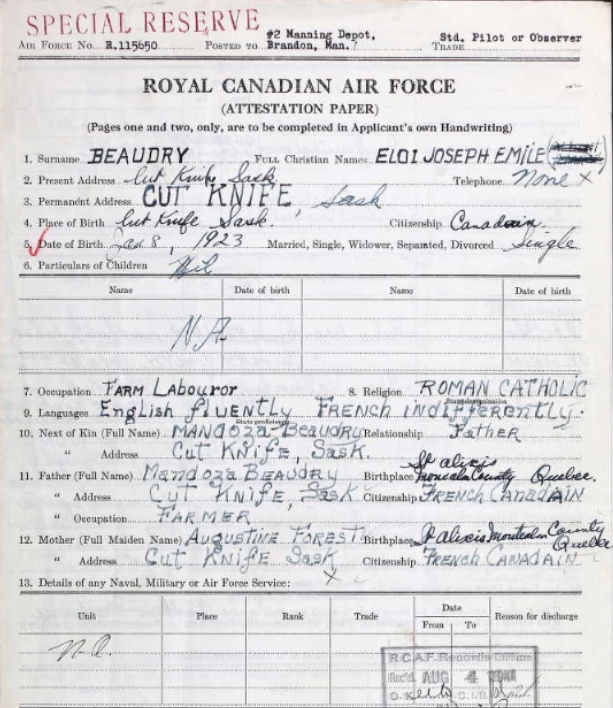 SPECIAL RESERVE
#2 Manning Depot, Std. Pilot or Observer
AIR FORCE NO. R.115650 POSTED TO Brandon, Man. TRADE
ROYAL CANADIAN AIR FORCE
(ATTESTATION PAPER)
(Pages one and two, only, are to be completed in Applicant's own Handwriting)
1. Surname BEAUDRY FULL Christian Names ELOI JOSEPH EMILE
2. Present Address Cut Knife Sask. Telephone None X
3. Permanent Address CUT KNIFE, Sask
4. Place of Birth Cut Knife Sask. Citizenship Canadain.
5. Date of Birth 8, 1923 Married, Single, Widower, Separated, Divorced Single
6. Particulars of Children Nil
Name Date of birth Name Date of birth
N.A.
7. Occupation FARM LABOUROR 8. Religion ROMAN CATHOLIC
State denomination
9. Languages English fluently FRENCH indifferently.
State proficiency
10. Next of Kin (Full Name) MANDOZA BEAUDRY Relationship Father
" Address Cut Knife, Sask.
11. Father (Full Name) Mandoza BEAUDRY Birthplace St alixis Montcalm County Quebec.
" Address Cut Knife, Sask Citizenship FRENCH CANADAIN
" Occupation FARMER
12. Mother (Full Maiden Name) AUGUSTINE FOREST Birthplace St alixis Montcalm County Quebec
" Address Cut Knife Sask Citizenship FRENCH CANADAIN
13. Details of any Naval, Military or Air Force Service: X
Unit Place Rank Trade Date Reason for discharge
From To
N.A.
R.C.A.F. Records Office
Rec'd. AUG 4
O.K. C.I.B.